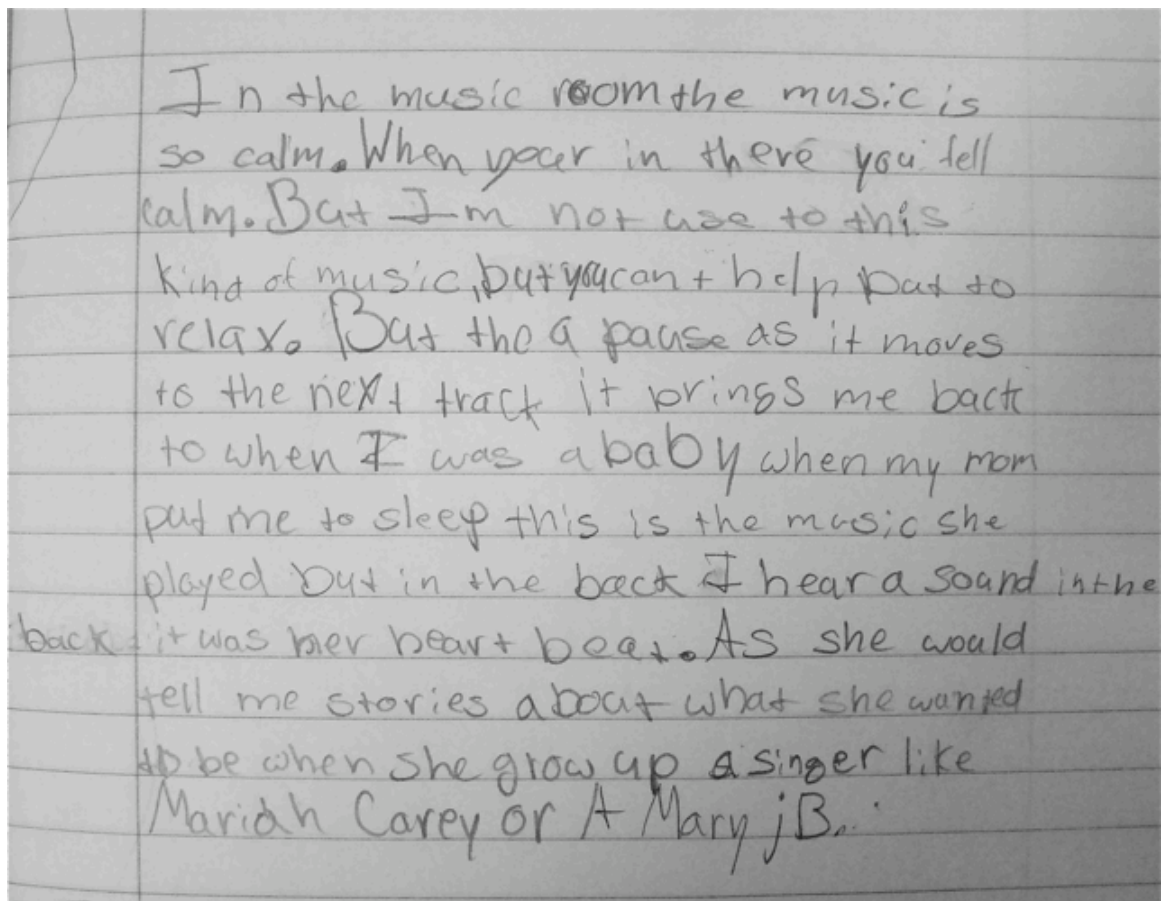 In the music room the music is
so calm. When your in there you fell
calm. But I m not use to this
kind of music, but you can t help but to
relax. But tho a pause as it moves
to the next track it brings me back
to when I was a baby when my mom
put me to sleep this is the music she
played but in the back I hear a sound in the
back it was her heart beat. As she would
tell me stories about what she wanted
to be when she grow up a singer like
Mariah Carey or A Mary j B.